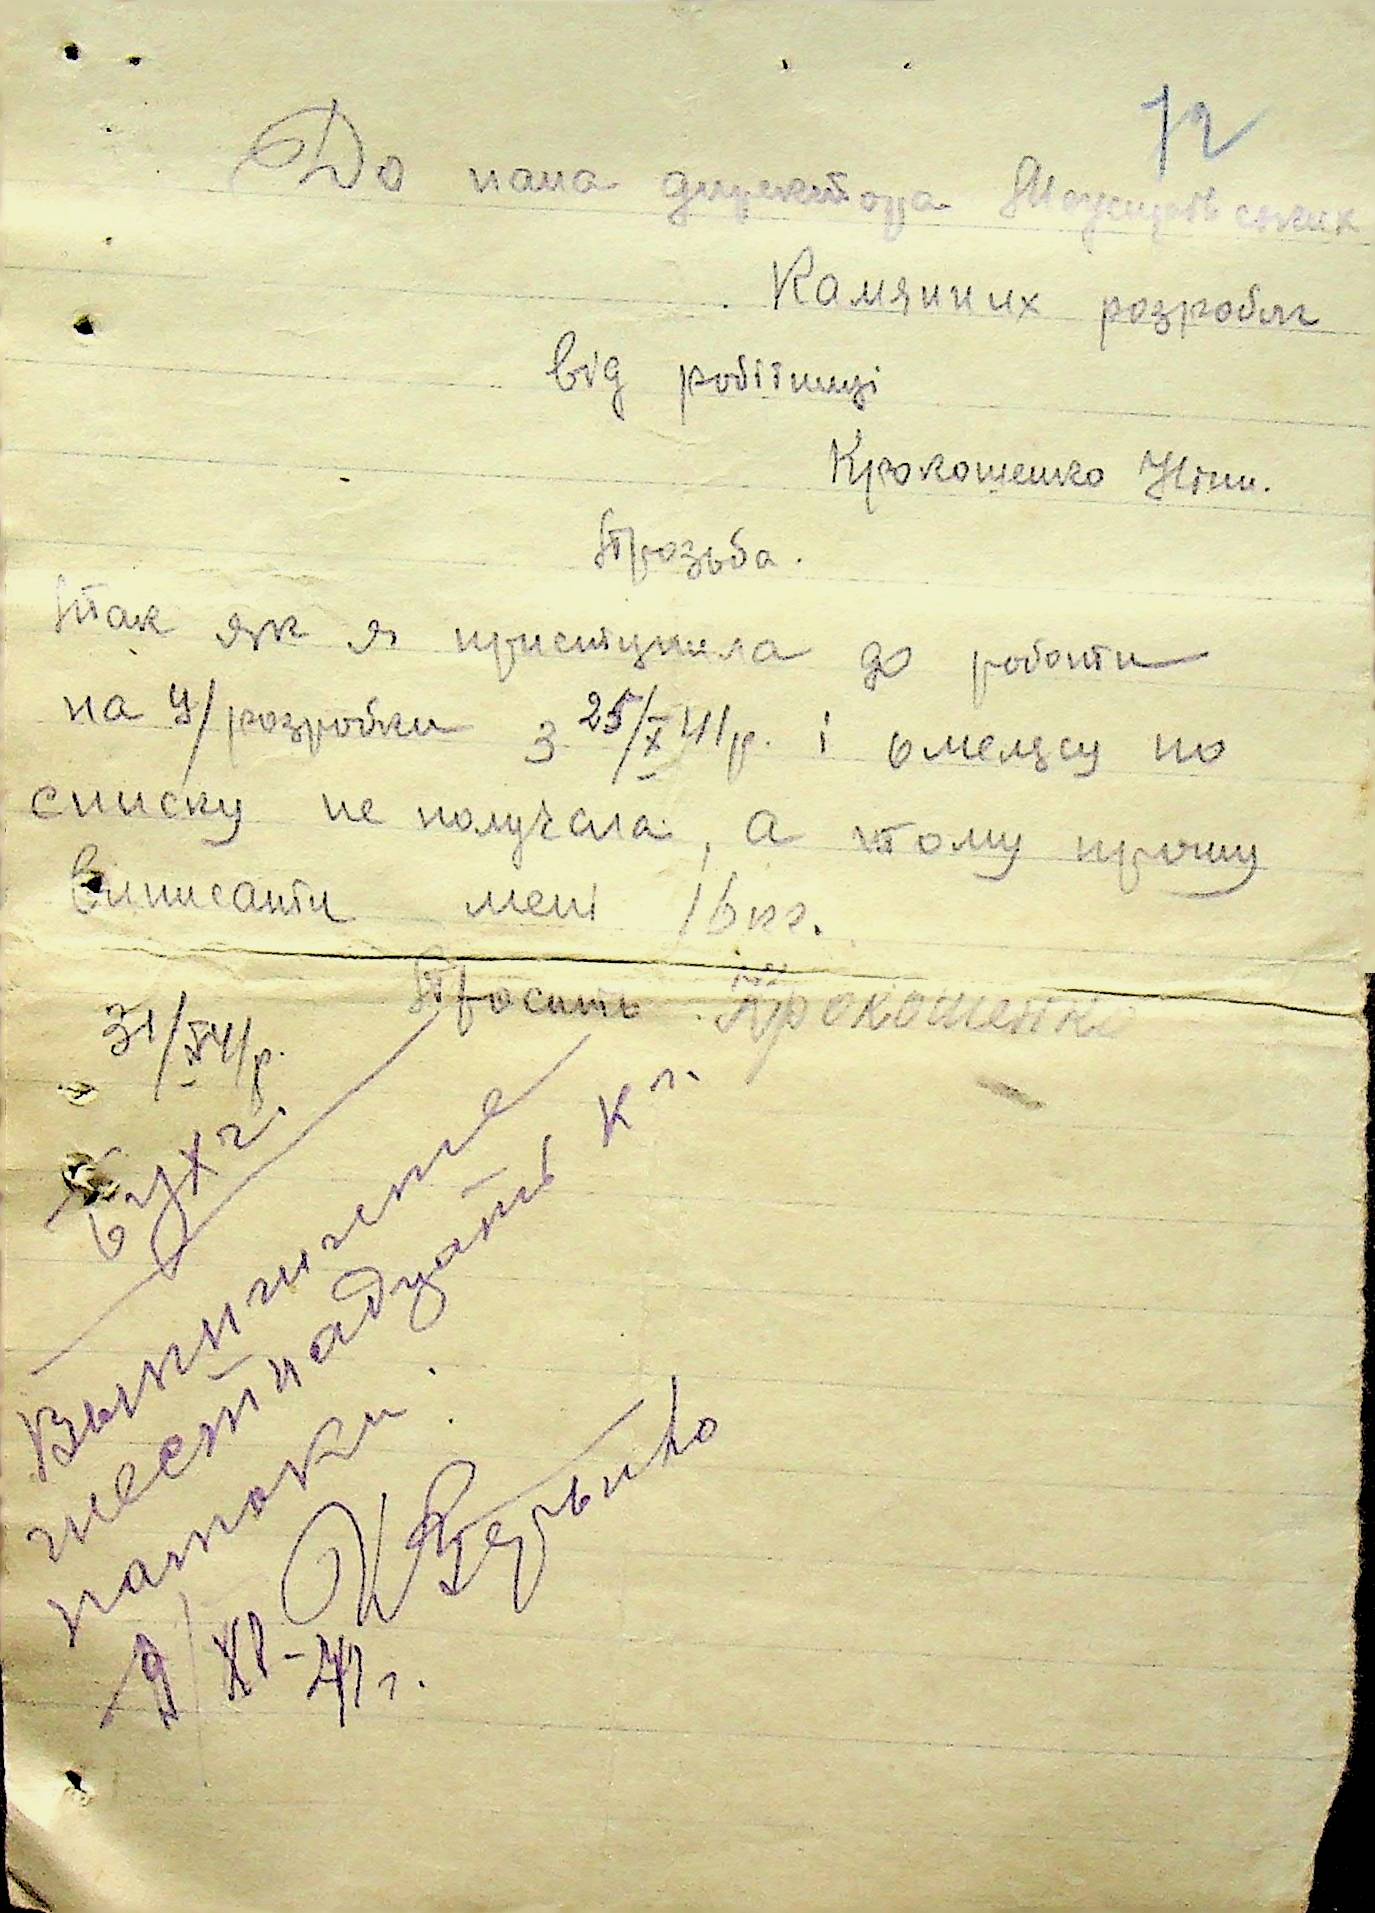 72
До пана директора
Камяних розробог
від робітниці
Крокошенко Ніни.
Прозьба.
Так як я приступила до роботи
на У/розробки з 25/X 41р. і
списку не получала, а тому прошу
Виписати мені 16 кг.
Просить Крокошенко
31/X 41р.
Бухг.
Выпишите
шестнадцать кг.
патоки.
К
9/XI-41 г.